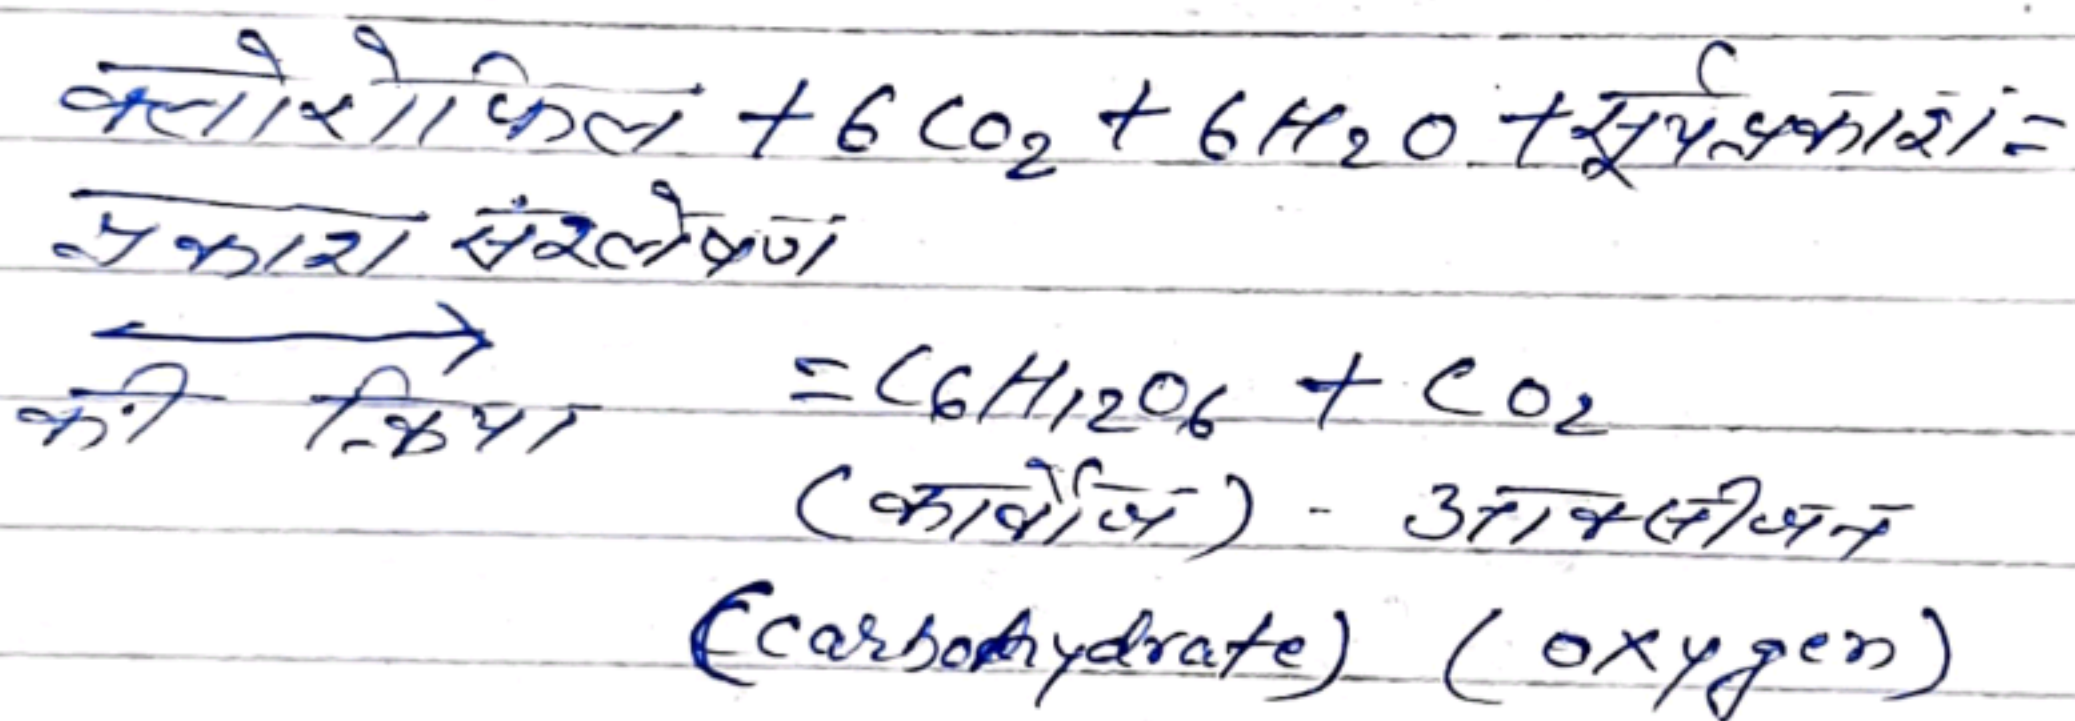 क्लोरोफिल + 6CO₂ + 6H₂O + सूर्यप्रकाश =
प्रकाश संश्लेषण
⟷
की क्रिया = C₆H₁₂O₆ + CO₂
(कार्बोज) - ऑक्सीजन
(carbohydrate) (oxygen)